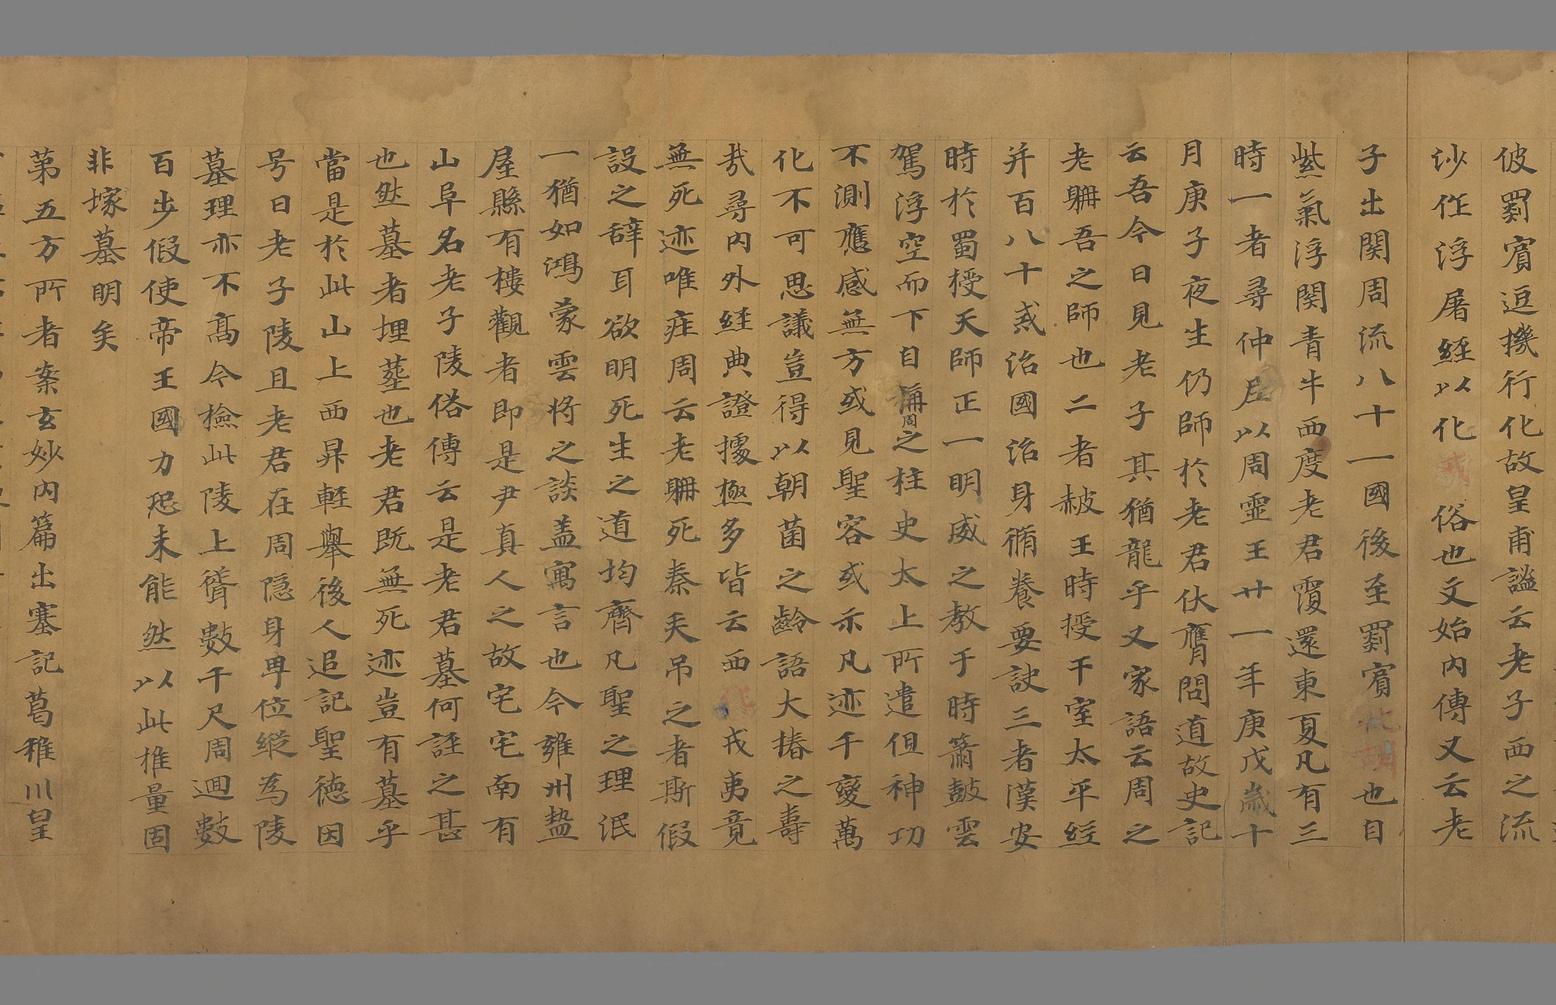 彼罽賓逗機行化故皇甫謐云老子西之流
沙作浮屠經以化戎俗也文始內傳又云老
子出関周流八十一國後至罽賓化胡也自
紫氣浮関青牛西度老君霞還東夏凡有三
時一者尋仲尼以周靈王廿一年庚戊歲十
月庚子夜生仍師於老君伏膺問道故史記
云吾今日見老子其猶龍乎又家語云周之
老聃吾之師也二者赧王時授千室太平經
并百八十戒治國治身脩養要訣三者漢安
時於蜀授天師正一明威之教于時簫皷雲
駕浮空而下自稱周之柱史太上所遣但神功
不測應感無方或見聖容或示凡迹千變萬
化不可思議豈得以朝菌之齡語大椿之壽
㢤尋內外經典證據極多皆云西化戎夷竟
無死迹唯庄周云老聃死秦失吊之者斯假
設之辞耳欲明死生之道均齊凡聖之理泯
一猶如鴻蒙雲将之談盖寓言也今雍州盩
屋縣有樓觀者即是尹真人之故宅宅南有
山阜名老子陵俗傳云是老君墓何誣之甚
也然墓者埋𦵏也老君既無死迹豈有墓乎
當是於此山上西昇輕舉後人追記聖德因
号曰老子陵且老君在周隐身卑位縱為陵
墓理亦不高今檢此陵上聳數千尺周迴數
百步假使帝王國力恐未能然以此惟量固
非塚墓明矣
第五方所者案玄妙內篇出塞記葛稚川皇